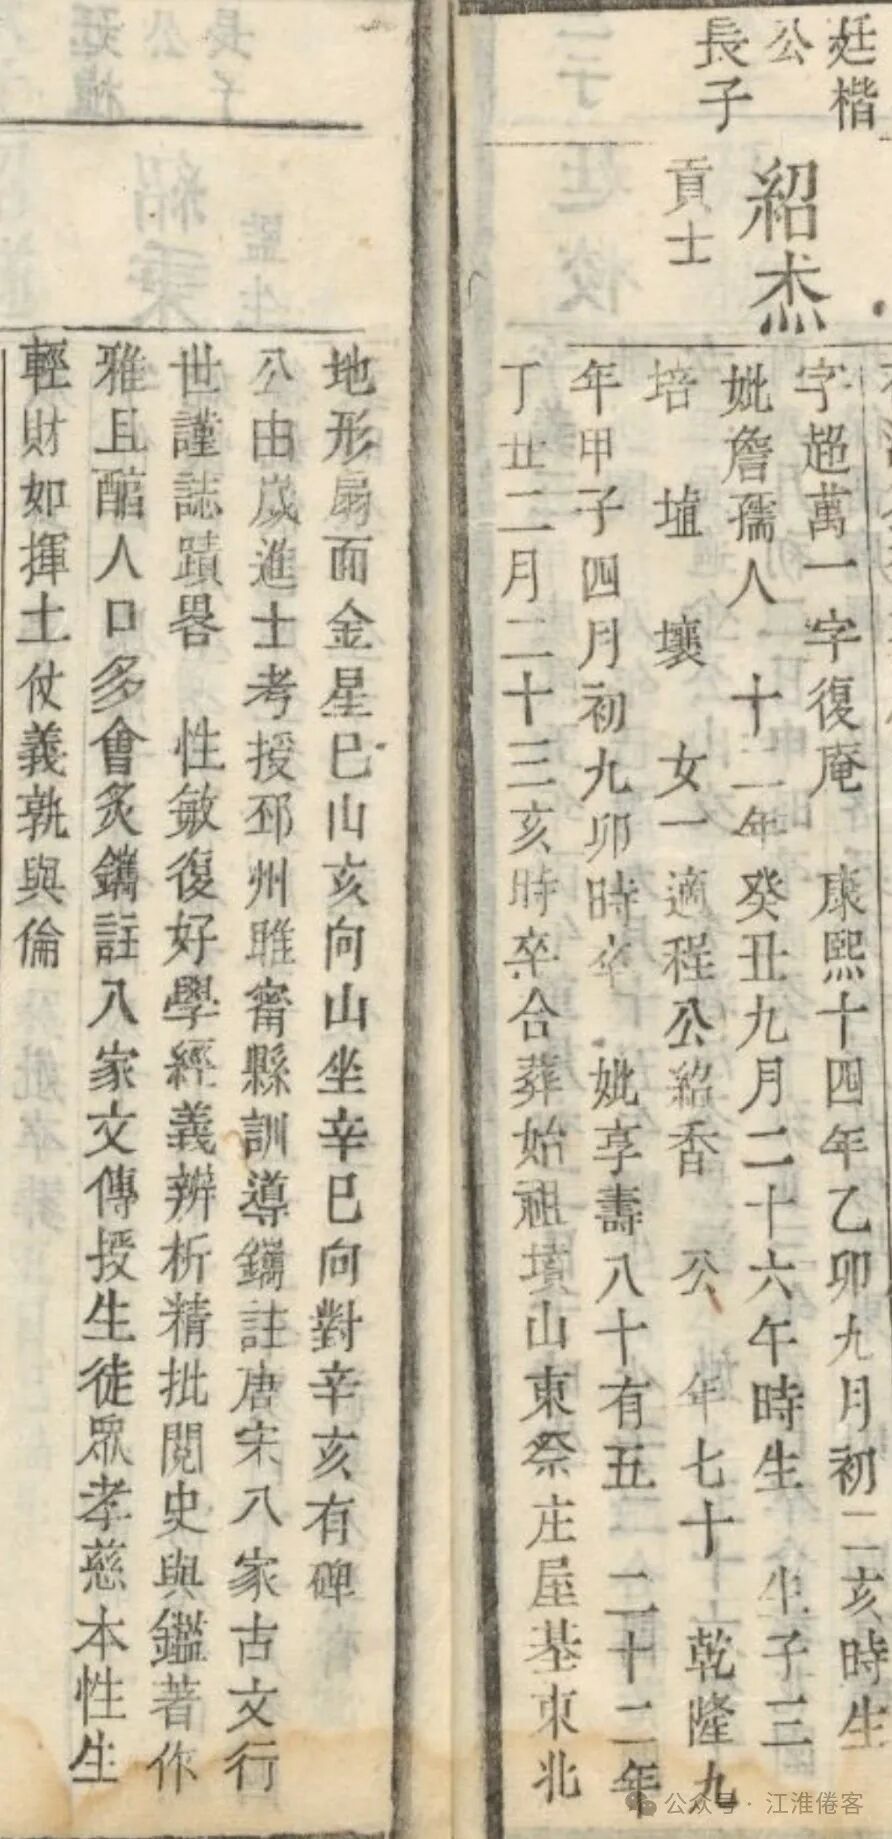 廷楷
公
長子
紹杰
貢士
字超萬一字復庵　康熙十四年乙卯九月初二亥時生
妣詹孺人　十二年癸丑九月二十六午時生　生子三
培　埴　壤　女一適程公紹香　公　年七十　乾隆九
年甲子四月初九卯時卒　妣享壽八十有五　二十二年
丁丑二月二十三亥時卒合葬始祖墳山東祭庄屋基東北
地形扇面金星巳山亥向山坐辛巳向對辛亥有碑
公由歲進士考授邳州睢甯縣訓導鐫註唐宋八家古文行
世謹誌蹟畧　性敏復好學經義辨析精批閱史與鑑著作
雅且醕人口多會炙鐫註八家文傳授生徒眾孝慈本性生
輕財如揮土仗義孰與倫
公众号·江淮倦客